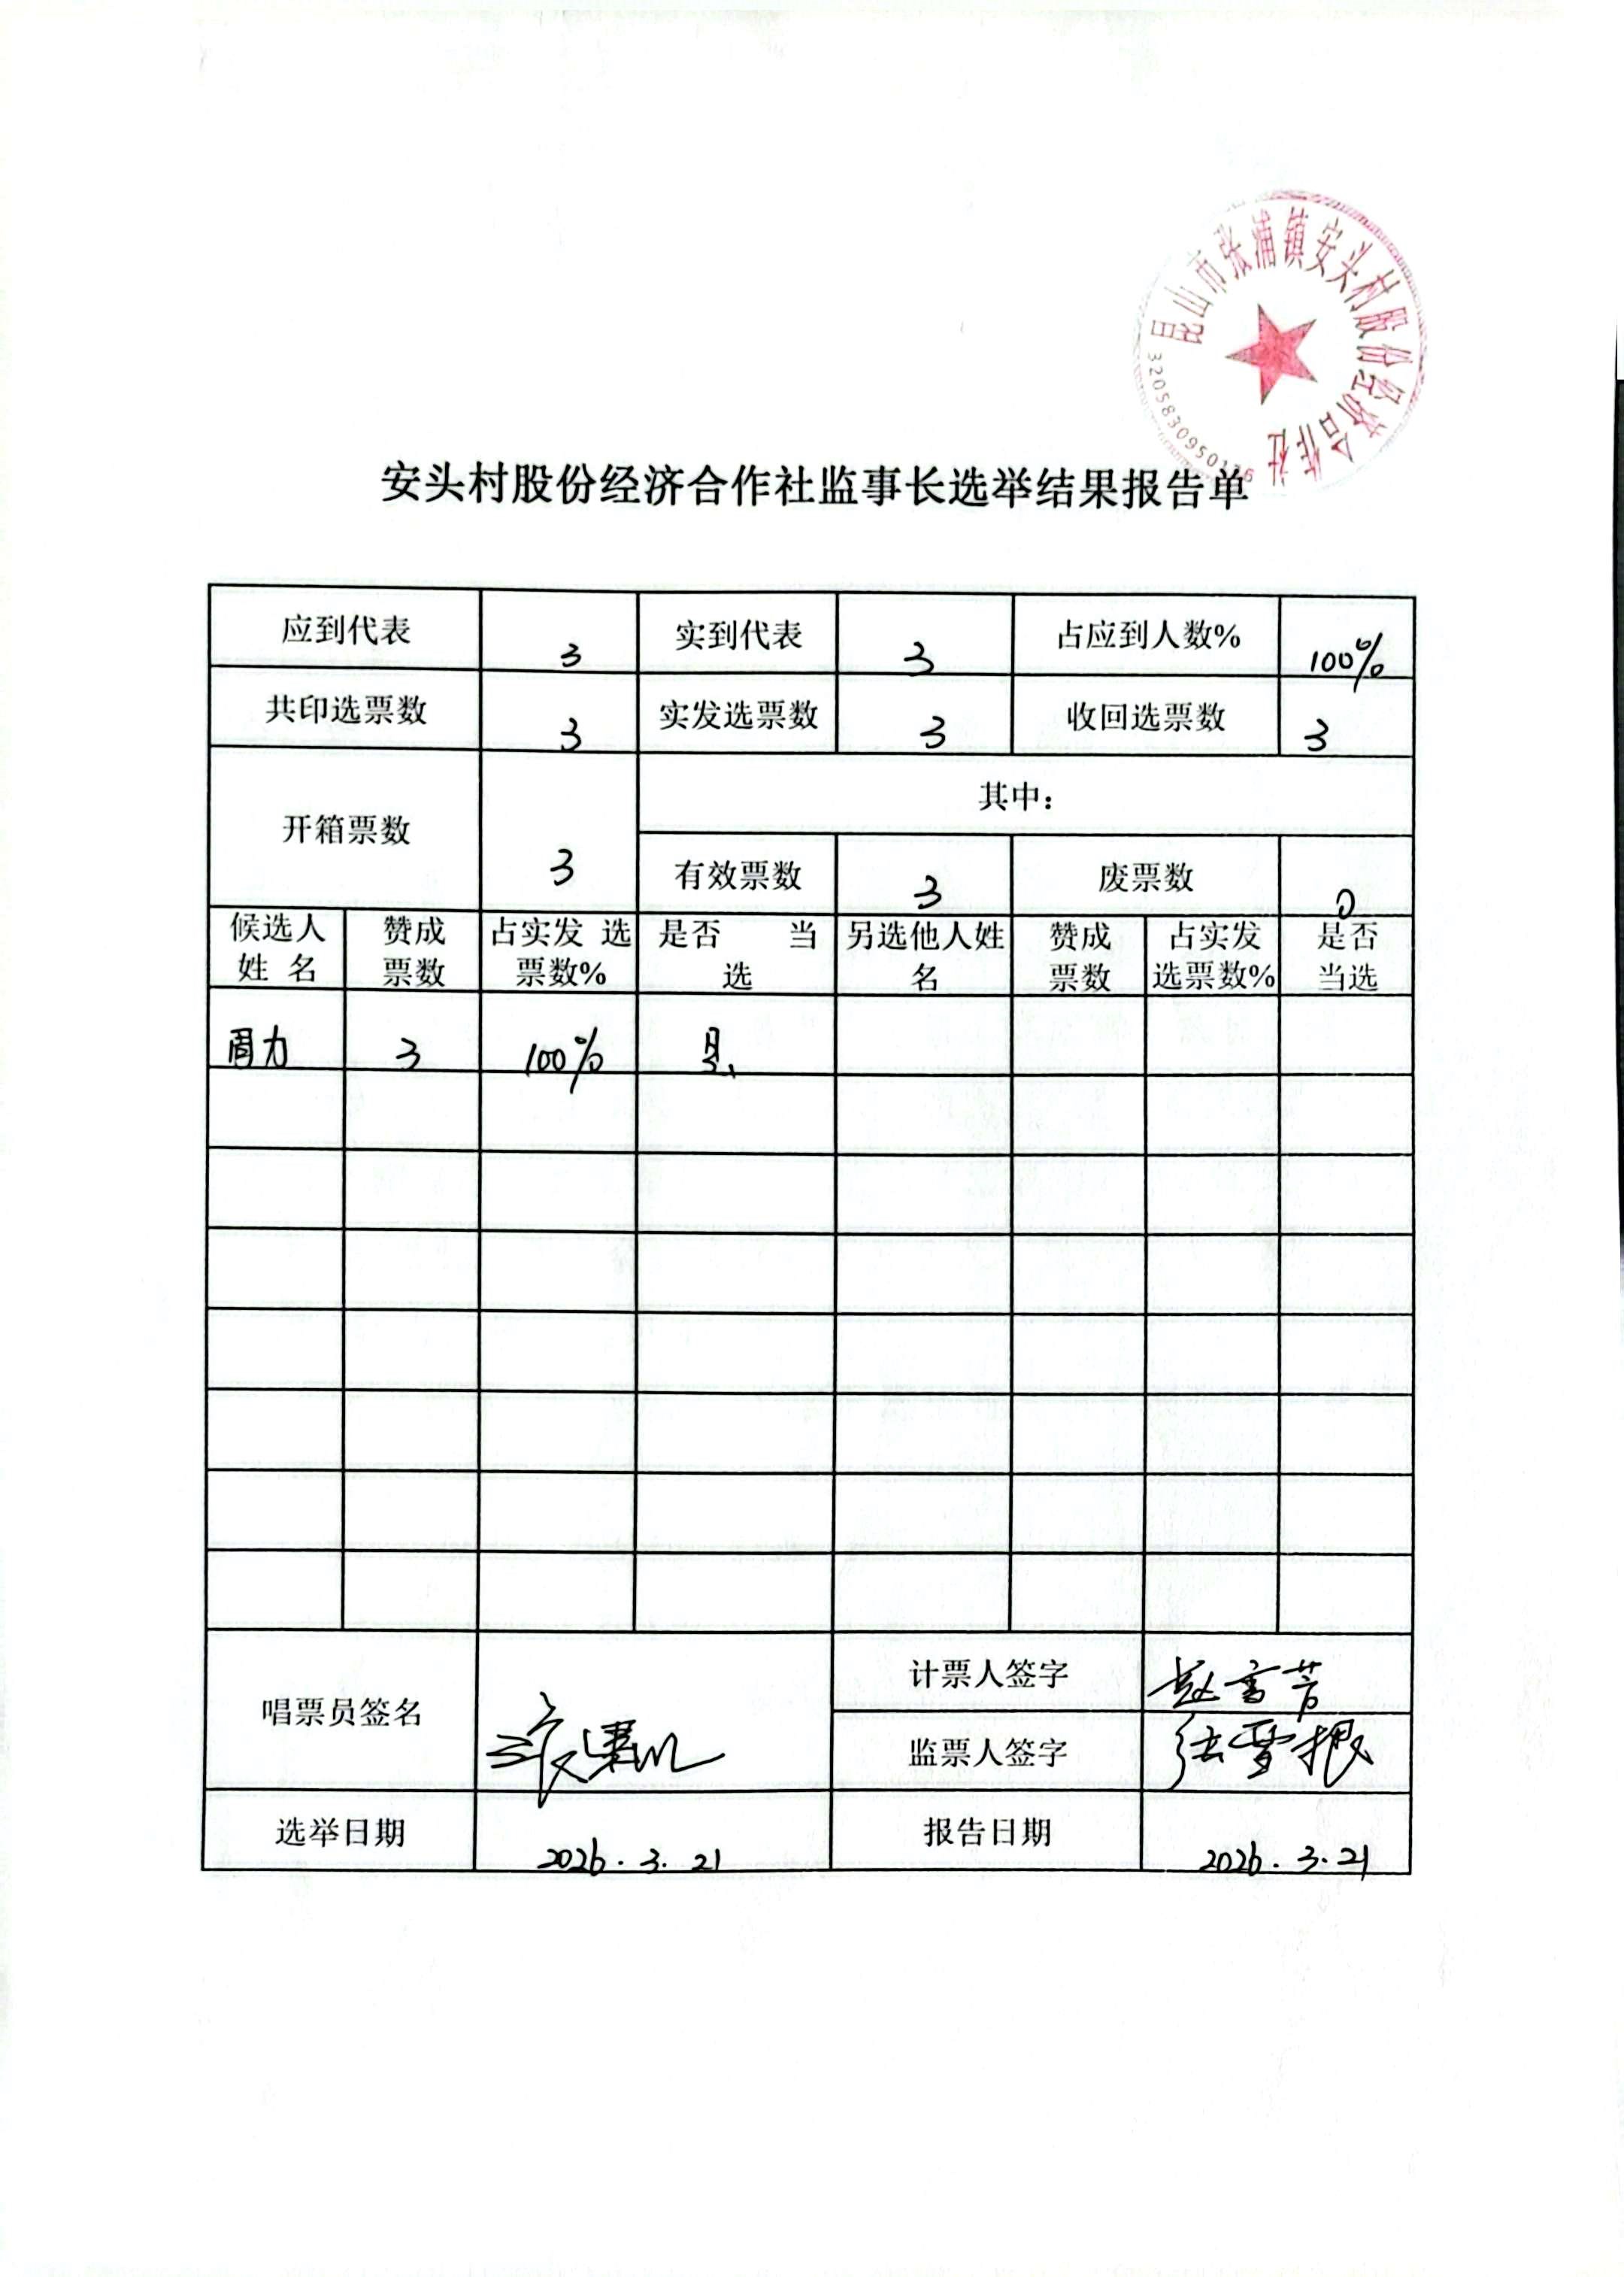 昆山市张浦镇安头村股份经济合作社
安头村股份经济合作社监事长选举结果报告单
应到代表 3 实到代表 3 占应到人数% 100%
共印选票数 3 实发选票数 3 收回选票数 3
开箱票数 3 其中：
有效票数 3 废票数 0
候选人姓 名 赞成票数 占实发 选票数% 是否 当选 另选他人姓名 赞成票数 占实发选票数% 是否当选
周力 3 100% 是
唱票员签名
计票人签字
监票人签字
选举日期 2026.3.21 报告日期 2026.3.21